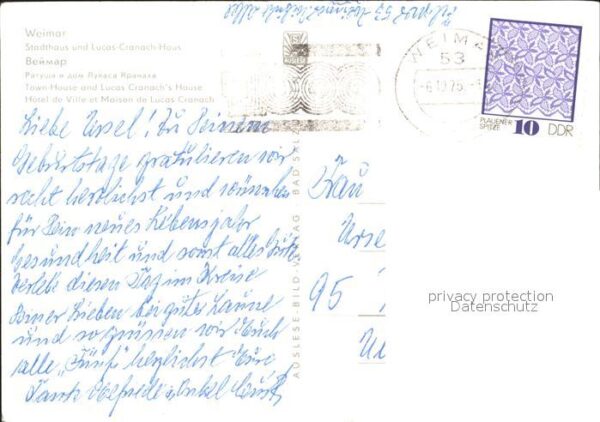 Weimar
Stadthaus und Lucas-Cranach-Haus
Веймар
Ратуша и дом Лукаса Кранаха
Town-House and Lucas Cranach's House
Hotel de Ville et Maison de Lucas Cranach
Liebe Ursel! Zu Deinem
Geburtstage gratulieren wir
recht herzlichst und wünschen
für Dein neues Lebensjahr
Gesundheit und sonst alles Gute
Verlebe diesen Tag im Kreise
Deiner Lieben bei guter Laune
und so grüssen wir Euch
alle "Fünf" herzlichst Eure
Tante Elfriede u. Onkel Curt
AUSLESE-BILD-VERLAG BAD SAL
WEIMA
53
-6.10.75.-
PLAUENER
SPITZE 10 DDR
Frau
Urse
95
privacy protection
Datenschutz